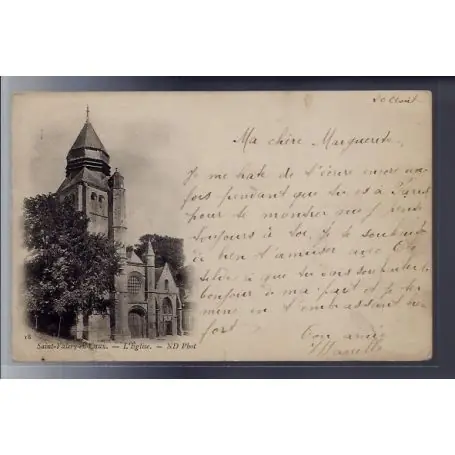 30 Août
Ma chère Marguerite,
Je me hâte de t'écrire encore une
fois pendant que tu es à Paris
pour te montrer que je pense
toujours à toi. Je te souhaite
de bien t'amuser avec
à que tu vas souhaiter le
bonjour de ma part et je ter
mine en t'embrassant
fort
Ton amie
18
Saint-Valery-en-Caux. — L'Église. — ND Phot